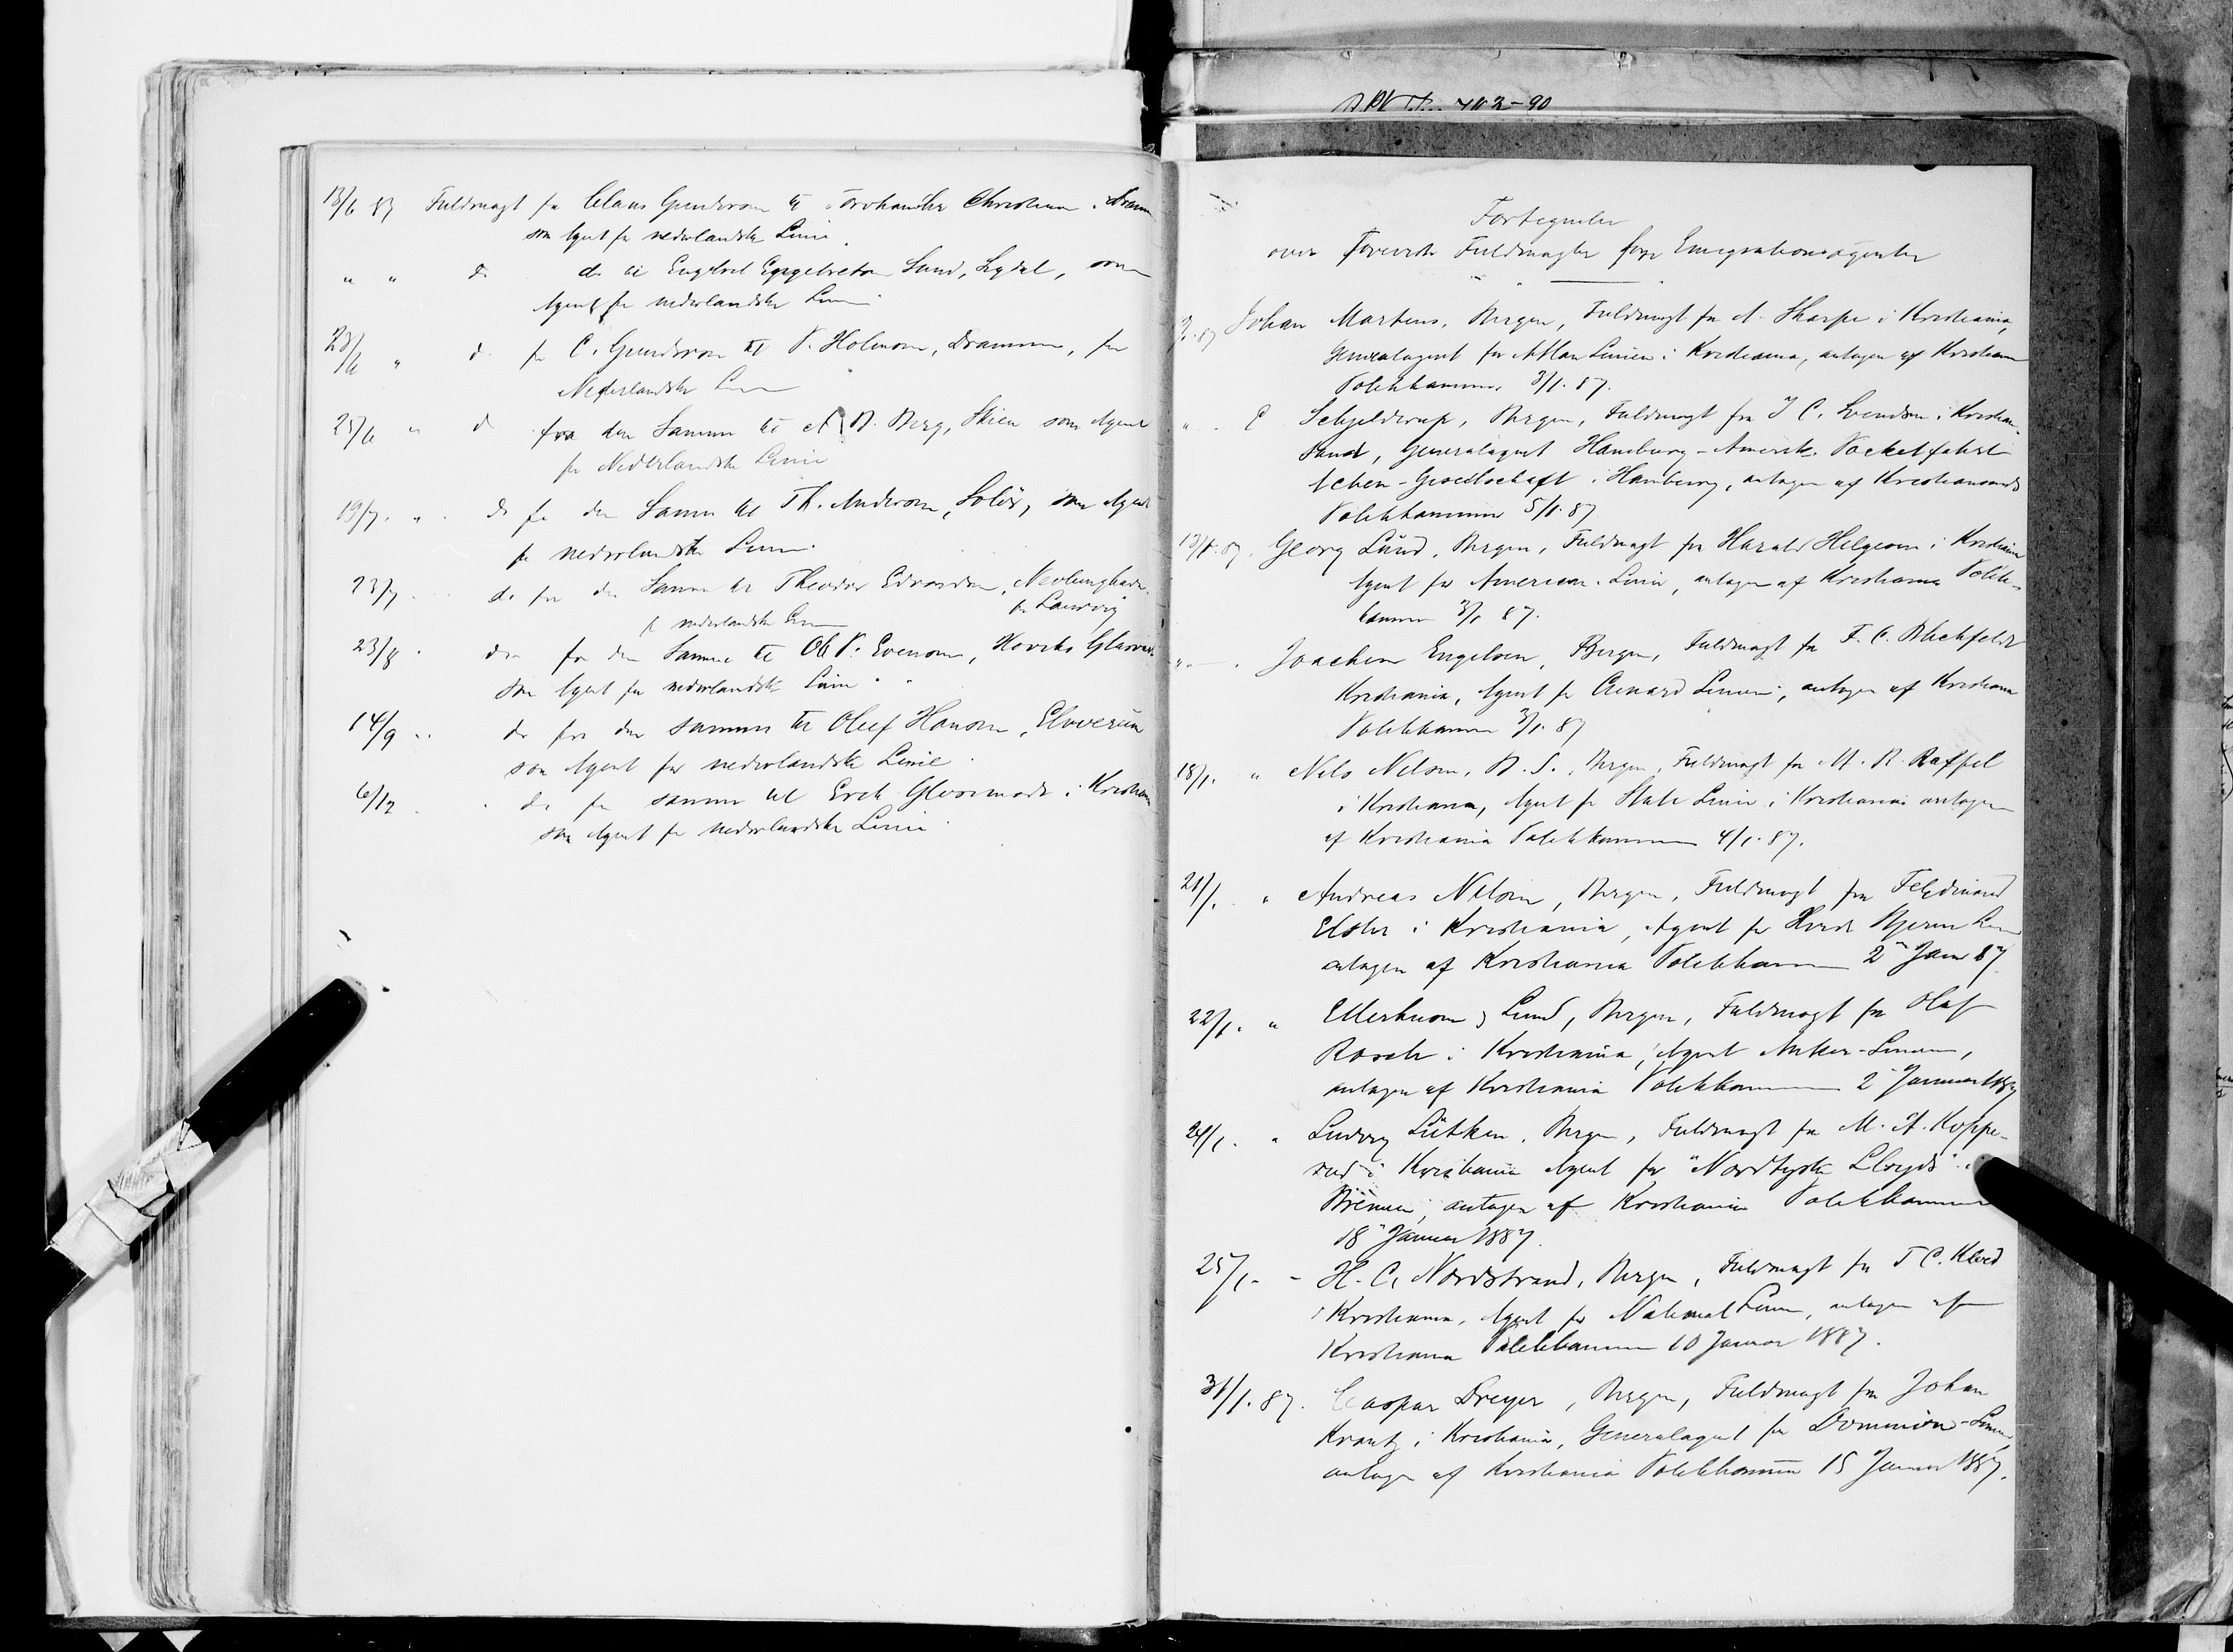 13/6 87 Fuldmagt fra Claus Gunderson til Torkander Christian i
som Agent for nederlandske Linie
" " do do til Engebret Engebretsen Lund, Sigdal, som
Agent for nederlandske Linie
23/6 " do fra C. Gunderson til P. Holmsen, Drammen, for
Nederlandske Linie
25/6 " do fra den Samme til A B. Berg, Skien som Agent
for Nederlandske Linie
19/7 " do fra den Samme til Th. Anderson, Solør, som Agent
for nederlandske Linie
23/7 do fra den Samme til Theodor Edvardsen, Nevlunghavn
for nederlandske Linie pr Laurvig
23/8 do fra den Samme til Ole P. Evensen, Glasværk
som Agent for nederlandske Linie
14/9 do fra den samme til Oluf Hansen, Elverum
som Agent for nederlandske Linie
6/12 do fra samme til i Kristiania
som Agent for nederlandske Linie
Fortegnelse
over foreviste Fuldmagter for Emigrationsagenter
87 Johan Martens, Bergen, Fuldmagt fra A. Sharpe i Kristiania,
Generalagent for Allan Linien i Kristiania, antagen af Kristiania
Politikammer 3/1. 87.
" C Schjelderup, Bergen, Fuldmagt fra J C. Svendsen i Kristian-
sand, Generalagent Hamburg-Amerik. Packetfahrt
Actien-Gesellschaft i Hamburg, antagen af Kristiansands
Politikammer 5/1. 87
13/1. 87. Georg Lund, Bergen, Fuldmagt fra Harald Helgesen i Kristiania
Agent for American-Linie, antagen af Kristiania Politi-
kammer 3/1 87.
" Joachim Engelsen, Bergen, Fuldmagt fra F. C. Blichfeldt
Kristiania, Agent for Cunard Linien, antagen af Kristiania
Politikammer 3/1. 87
18/1. " Nils Nilsen, B. S., Bergen, Fuldmagt fra M. R. Raffel
i Kristiania, Agent for State Linie i Kristiania antagen
af Kristiania Politikammer 4/1. 87.
21/1. " Andreas Nilsen, Bergen, Fuldmagt fra Ferdinand
Elster i Kristiania, Agent for Hvide Stjerne Linie
antagen af Kristiania Politikammer 2 Jan 87
22/1. " Ellerhusen & Lund, Bergen, Fuldmagt fra Olaf
i Kristiania, Agent Anker-Linien,
antagen af Kristiania Politikammer 2 Januar 1887
24/1. " Ludvig Lütken, Bergen, Fuldmagt fra M. A. Koppe-
rud i Kristiania Agent for "Nordtyske Lloyds" i
Bremen, antagen af Kristiania Politikammer
18 Januar 1887.
25/1. - H. C. Nordstrand, Bergen, Fuldmagt fra T C. Kleve
i Kristiania, Agent for National Linie, antagen af
Kristiania Politikammer 10 Januar 1887.
31/1. 87. Caspar Dreyer, Bergen, Fuldmagt fra Johan
Krantz i Kristiania, Generalagent for Dominion-Linien,
antagen af Kristiania Politikammer 15 Januar 1887.